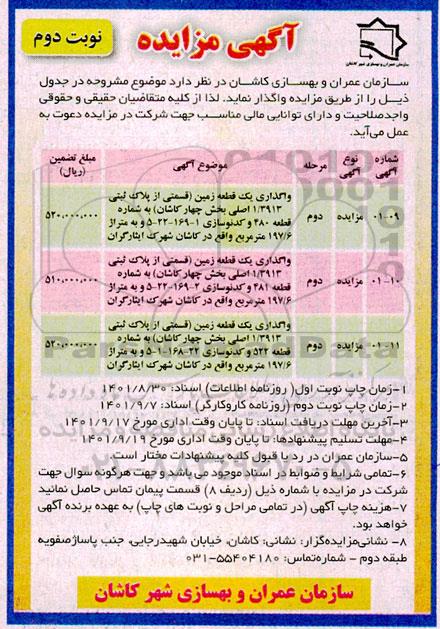 سازمان عمران و بهسازی شهر کاشان
آگهی مزایده
نوبت دوم
سازمان عمران و بهسازی کاشان در نظر دارد موضوع مشروحه در جدول
ذیل را از طریق مزایده واگذار نماید. لذا از کلیه متقاضیان حقیقی و حقوقی
واجدصلاحیت و دارای توانایی مالی مناسب جهت شرکت در مزایده دعوت به
عمل می‌آید.
شماره آگهی نوع آگهی مرحله موضوع آگهی مبلغ تضمین (ریال)
۰۱-۰۹ مزایده دوم واگذاری یک قطعه زمین (قسمتی از پلاک ثبتی
۱/۳۹۱۳ اصلی بخش چهار کاشان) به شماره
قطعه ۴۸۰ و کدنوسازی ۱-۱۶۹-۲۲-۵ و به متراژ
۱۹۷/۶ مترمربع واقع در کاشان شهرک ایثارگران
۵۲۰,۰۰۰,۰۰۰
۰۱-۱۰ مزایده دوم واگذاری یک قطعه زمین (قسمتی از پلاک ثبتی
۱/۳۹۱۳ اصلی بخش چهار کاشان) به شماره
قطعه ۴۸۱ و کدنوسازی ۲-۱۶۹-۲۲-۵ و به متراژ
۱۹۷/۶ مترمربع واقع در کاشان شهرک ایثارگران
۵۱۰,۰۰۰,۰۰۰
۰۱-۱۱ مزایده دوم واگذاری یک قطعه زمین (قسمتی از پلاک ثبتی
۱/۳۹۱۳ اصلی بخش چهار کاشان) به شماره
قطعه ۵۲۲ و کدنوسازی ۲۲-۱۶۸-۱-۵ و به متراژ
۱۹۷/۶ مترمربع واقع در کاشان شهرک ایثارگران
۵۲۰,۰۰۰,۰۰۰
۱-زمان چاپ نوبت اول(روزنامه اطلاعات) اسناد: ۱۴۰۱/۸/۳۰
۲-زمان چاپ نوبت دوم (روزنامه کاروکارگر) اسناد: ۱۴۰۱/۹/۷
۳-آخرین مهلت دریافت اسناد: تا پایان وقت اداری مورخ ۱۴۰۱/۹/۱۷
۴-مهلت تسلیم پیشنهادها: تا پایان وقت اداری مورخ ۱۴۰۱/۹/۱۹
۵-سازمان عمران در رد یا قبول کلیه پیشنهادات مختار است.
۶-تمامی شرایط و ضوابط در اسناد موجود می باشد و جهت هرگونه سوال جهت
شرکت در مزایده با شماره ذیل (ردیف ۸) قسمت پیمان تماس حاصل نمائید
۷-هزینه چاپ آگهی (در تمامی مراحل و نوبت های چاپ) به عهده برنده آگهی
خواهد بود.
۸- نشانی‌مزایده‌گزار: نشانی: کاشان، خیابان شهیدرجایی، جنب پاساژصفویه
طبقه دوم - شماره‌تماس: ۵۵۴۰۴۱۸۰-۰۳۱
سازمان عمران و بهسازی شهر کاشان